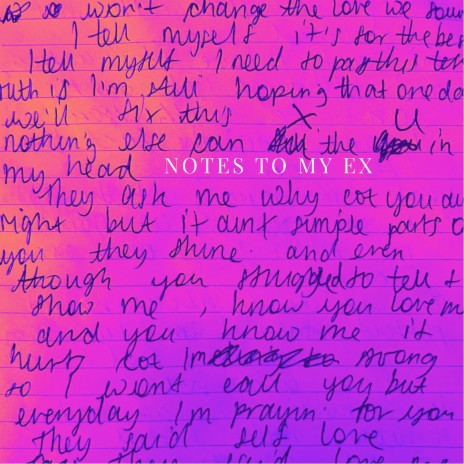 won't change the love we
I tell myself it's for the bes
I tell myself I need to pass this
ruth is I'm still hoping that one da
we'll fix this X U
nothing else can the in
my head
NOTES TO MY EX
They ask me why coz you au
right but it aint simple parts o
you they shine. and even
though you struggled to tell &
show me, I know you love m
and you know me it
hurts coz I'm strong
so I wont call you but
everyday I'm prayin. for you
They said self love